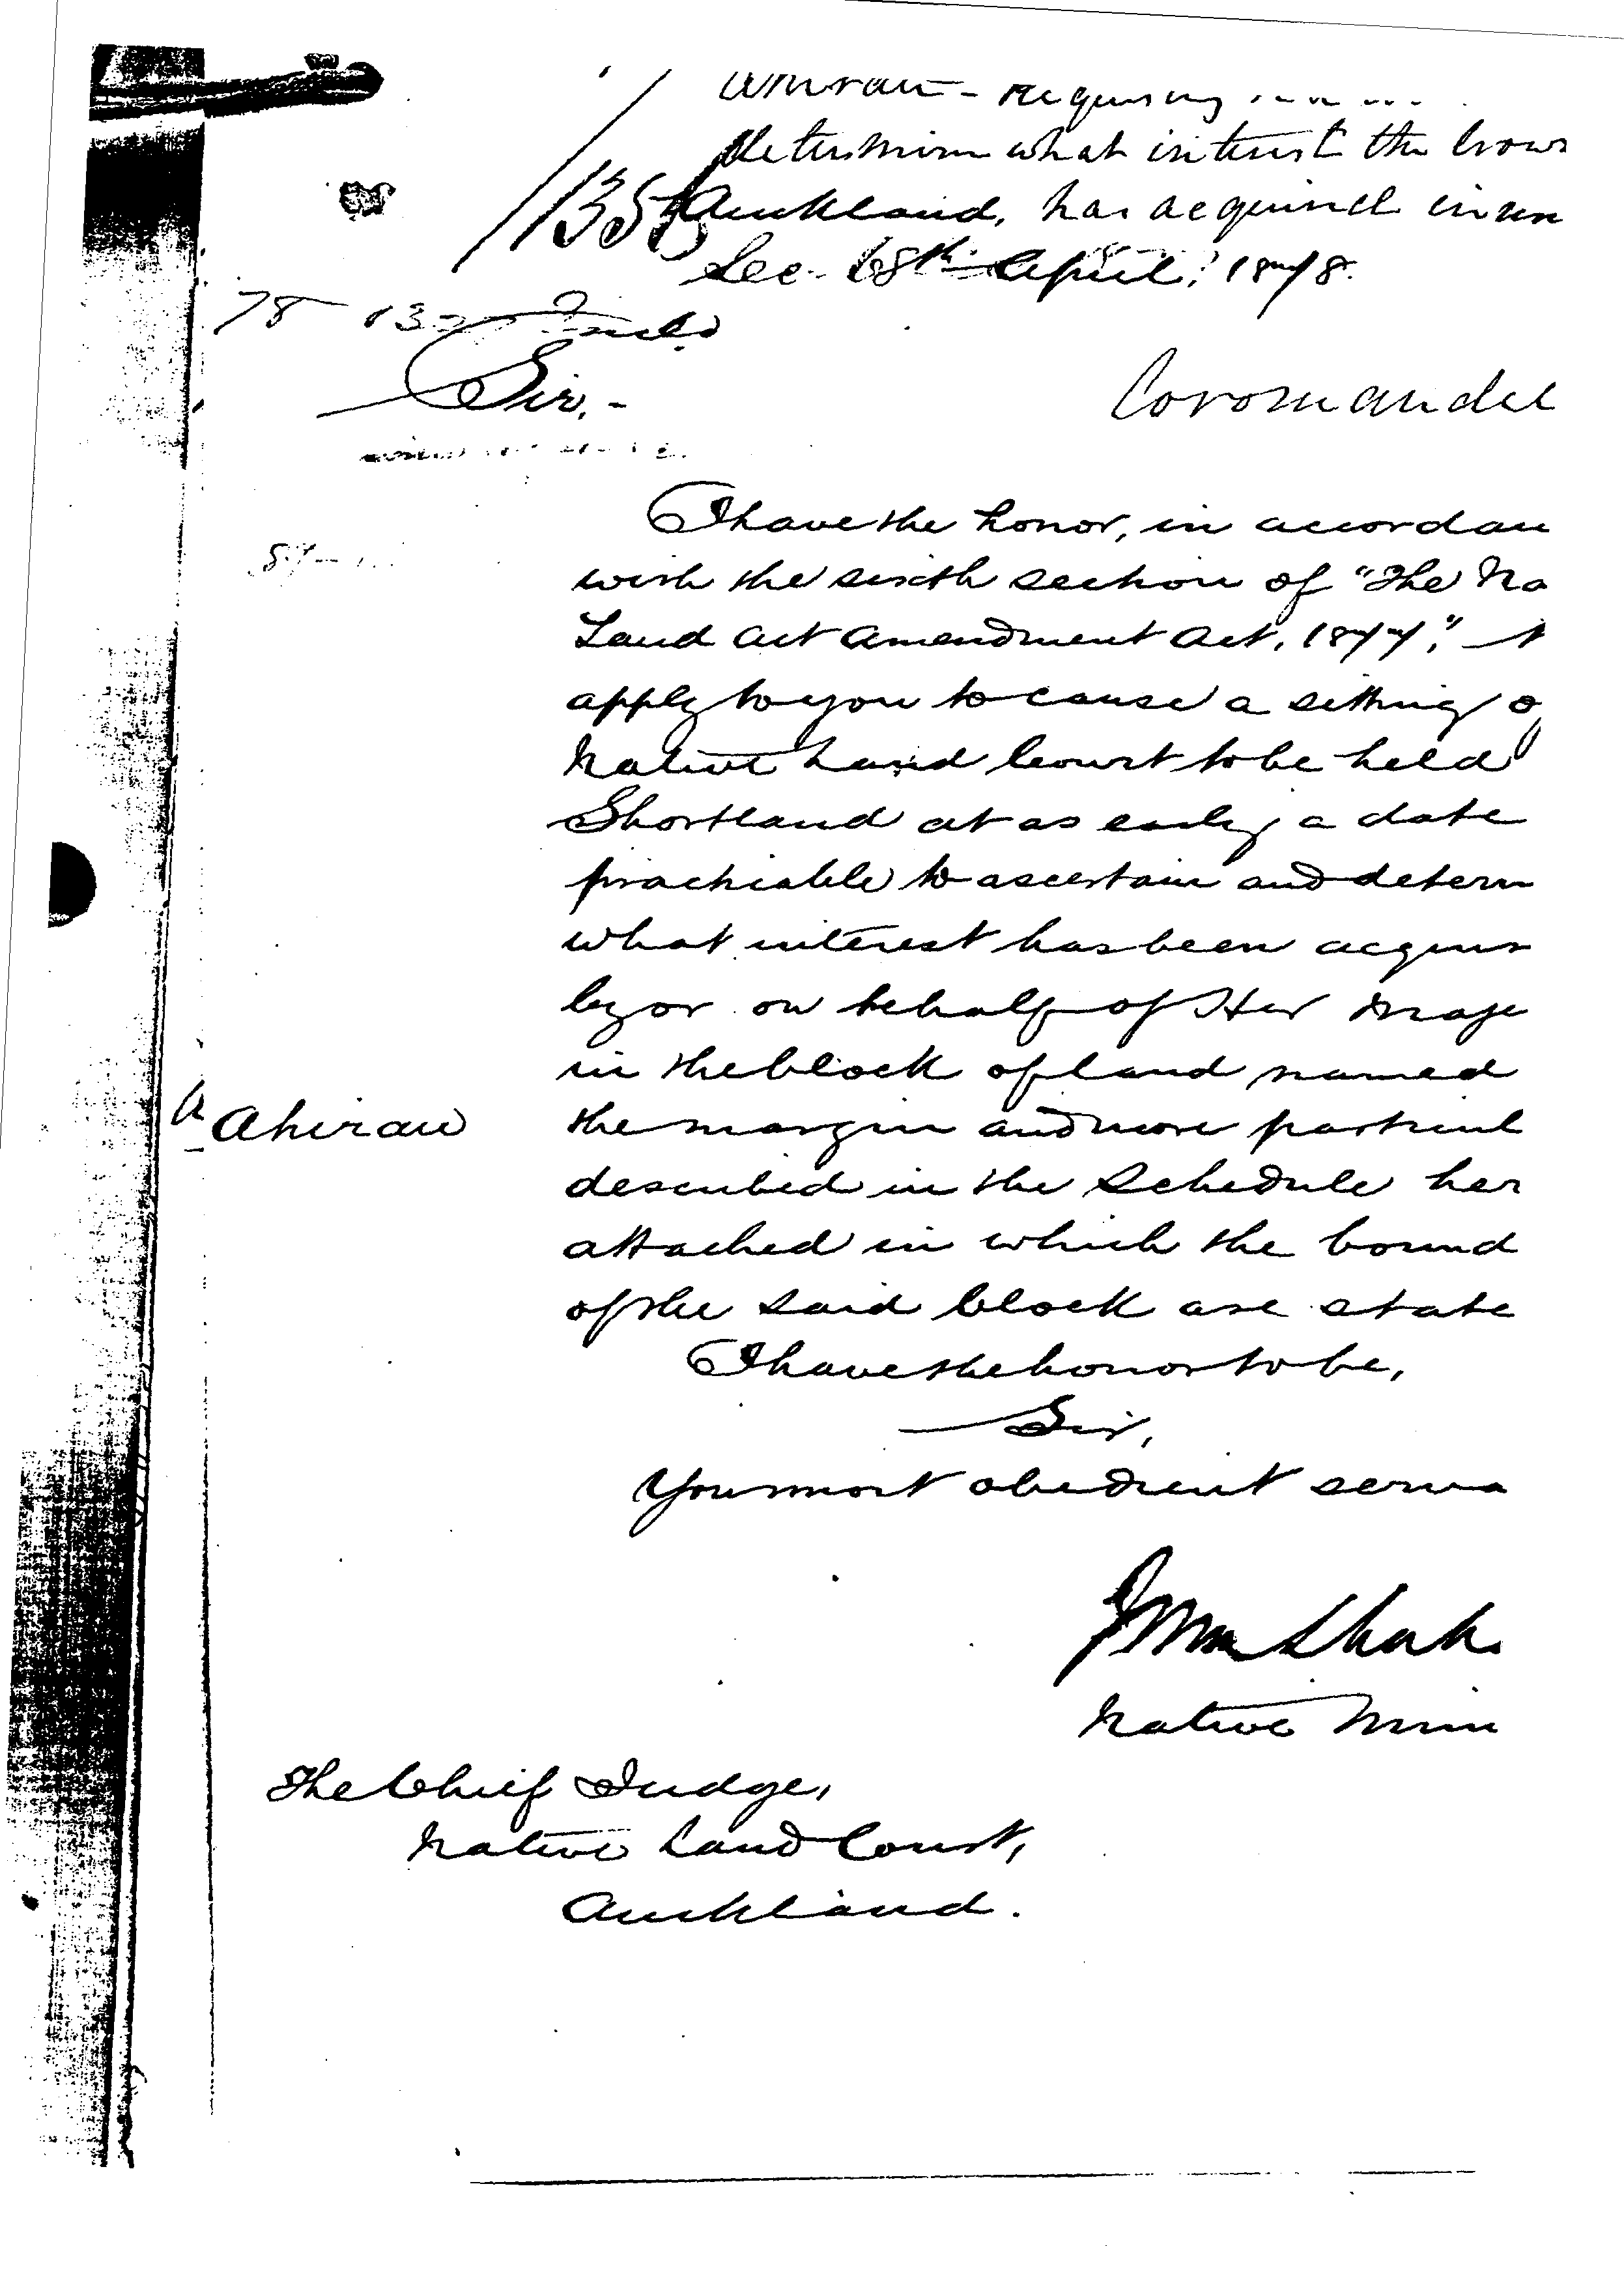 Ahirau - requiring
determine what interest the Crown
Auckland, has acquired in
Dec. 18th April, 1878.
78
Sir,-
Coromandel
I have the honor, in accordan
with the sixth section of "The Na
Land Act Amendment Act, 1877," t
apply to you to cause a sitting o
Native Land Court to be held
Shortland at as early a date
practicable to ascertain and determ
what interest has been acquir
by or on behalf of Her Maje
in the block of land named
Ahirau the margin and more particul
described in the Schedule her
attached in which the bound
of the said block are state
I have the honor to be,
Sir,
Your most obedient serva
Native Mini
The Chief Judge,
Native Land Court,
Auckland.